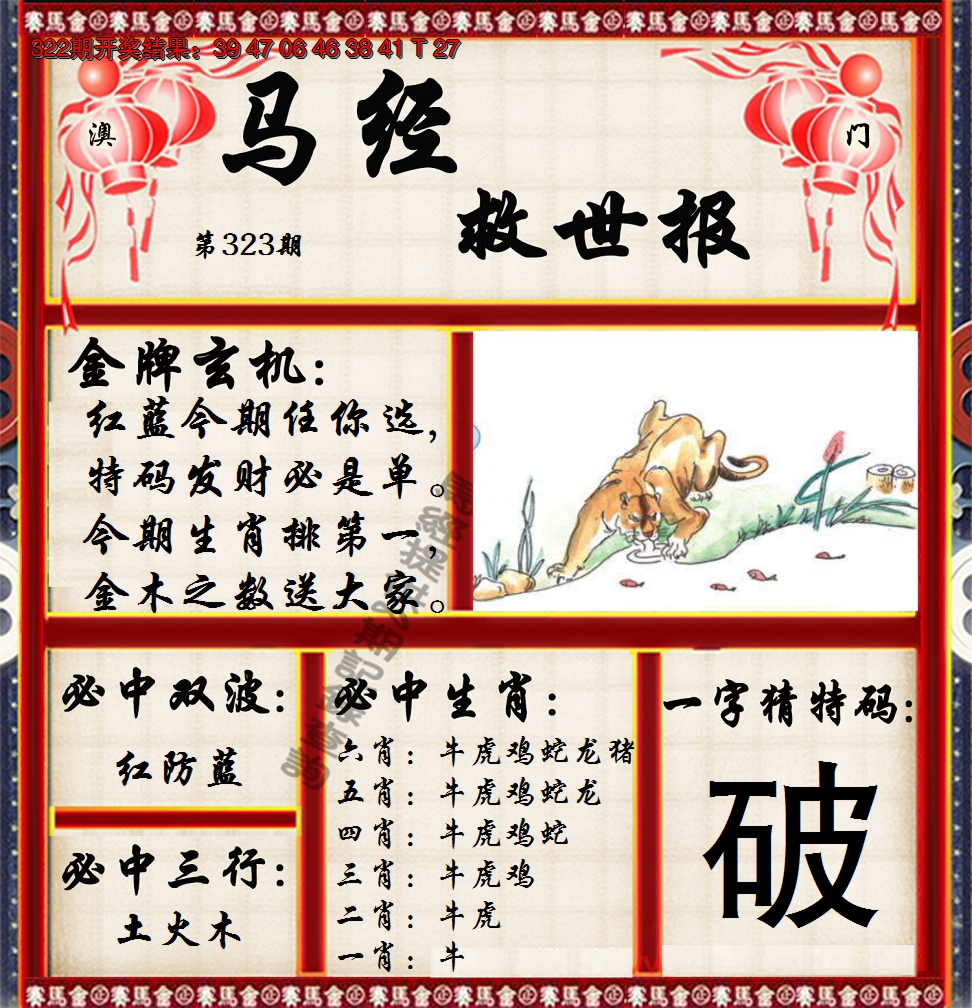 賽馬會
322期开奖结果：39 47 06 46 38 41 T 27
马经
澳
门
救世报
第323期
金牌玄机：
红蓝今期任你选，
特码发财必是单。
今期生肖排第一，
金木之数送大家。
必中双波：
红防蓝
必中三行：
土火木
必中生肖：
六肖：牛虎鸡蛇龙猪
五肖：牛虎鸡蛇龙
四肖：牛虎鸡蛇
三肖：牛虎鸡
二肖：牛虎
一肖：牛
一字猜特码：
破
賽馬會